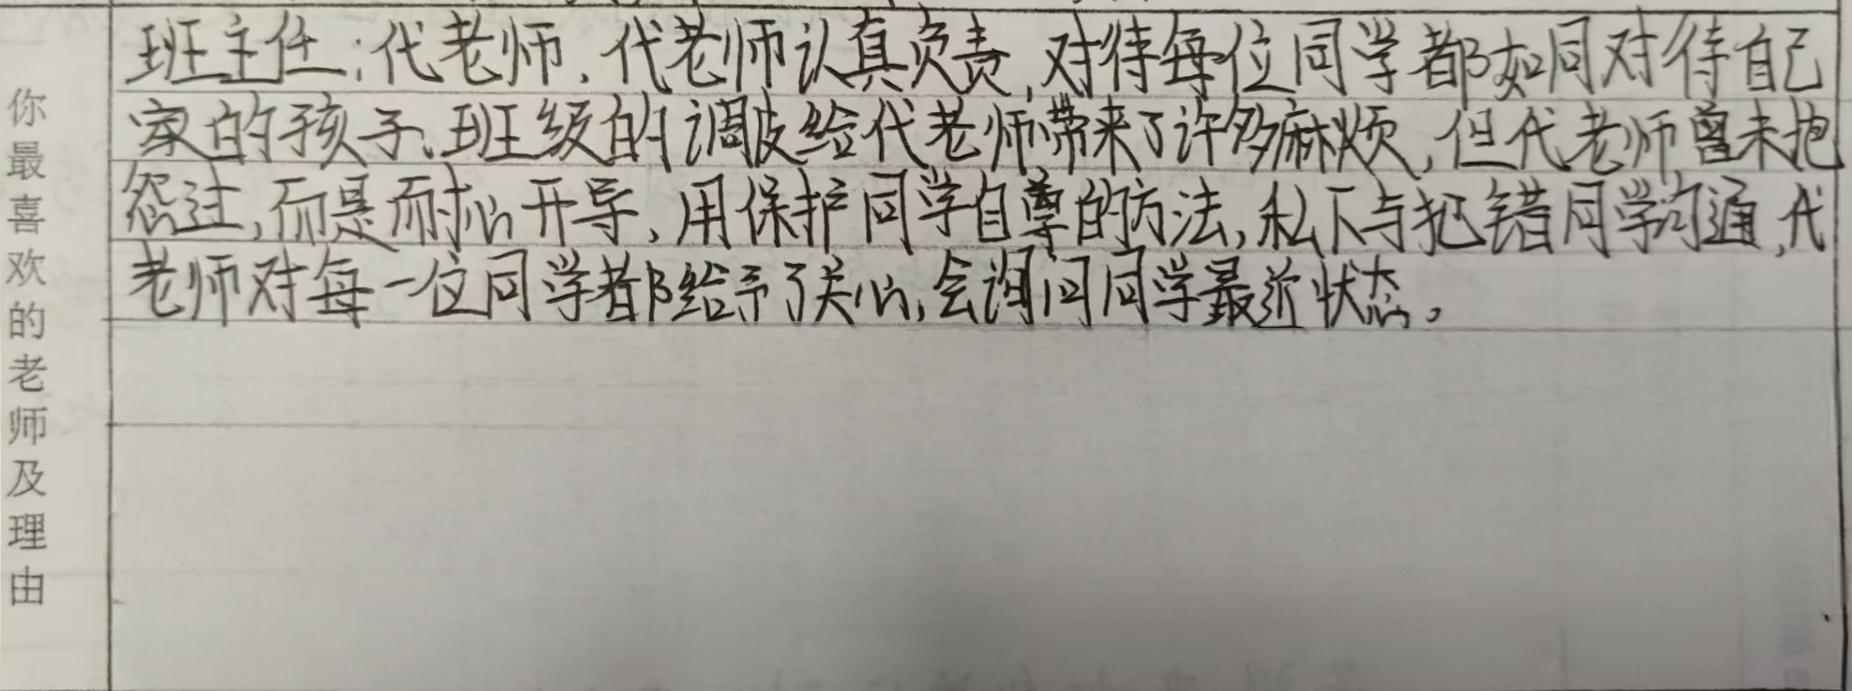 你最喜欢的老师及理由
班主任:代老师、代老师认真负责,对待每位同学都如同对待自己
家的孩子、班级的调皮给代老师带来了许多麻烦,但代老师曾未抱
怨过,而是耐心开导,用保护同学自尊的方法,私下与犯错同学沟通,代
老师对每一位同学都给予了关心,会询问同学最近状态。